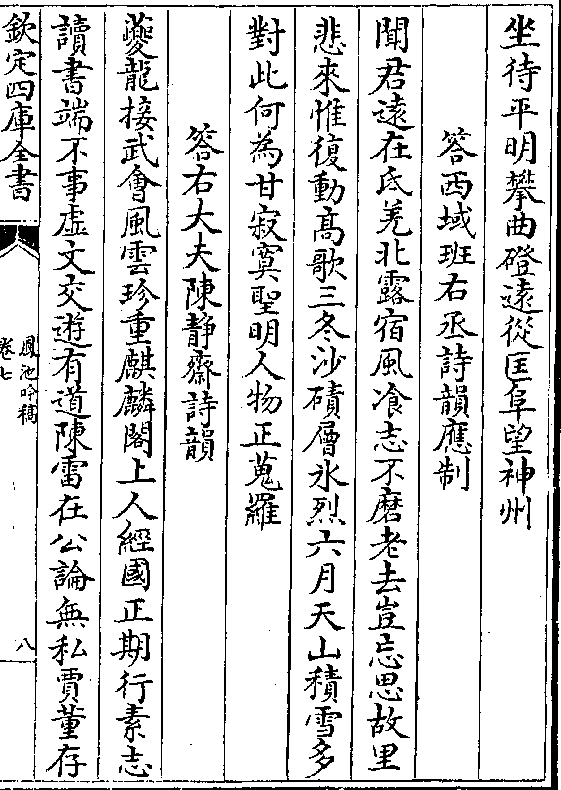 坐待平明攀曲磴遠從匡阜望神州
答西域班右丞詩韻應制
聞君遠在氐羌北露宿風飡志不磨老去豈忘思故里
悲來惟復動髙歌三冬沙磧層氷烈六月天山積雪多
對此何為甘寂寞聖明人物正蒐羅
答右大夫陳靜齋詩韻
夔龍接武會風雲珍重麒麟閣上人經國正期行素志
讀書端不事虛文交遊有道陳雷在公論無私賈董存
欽定四庫全書
鳳池吟稿
卷七
八